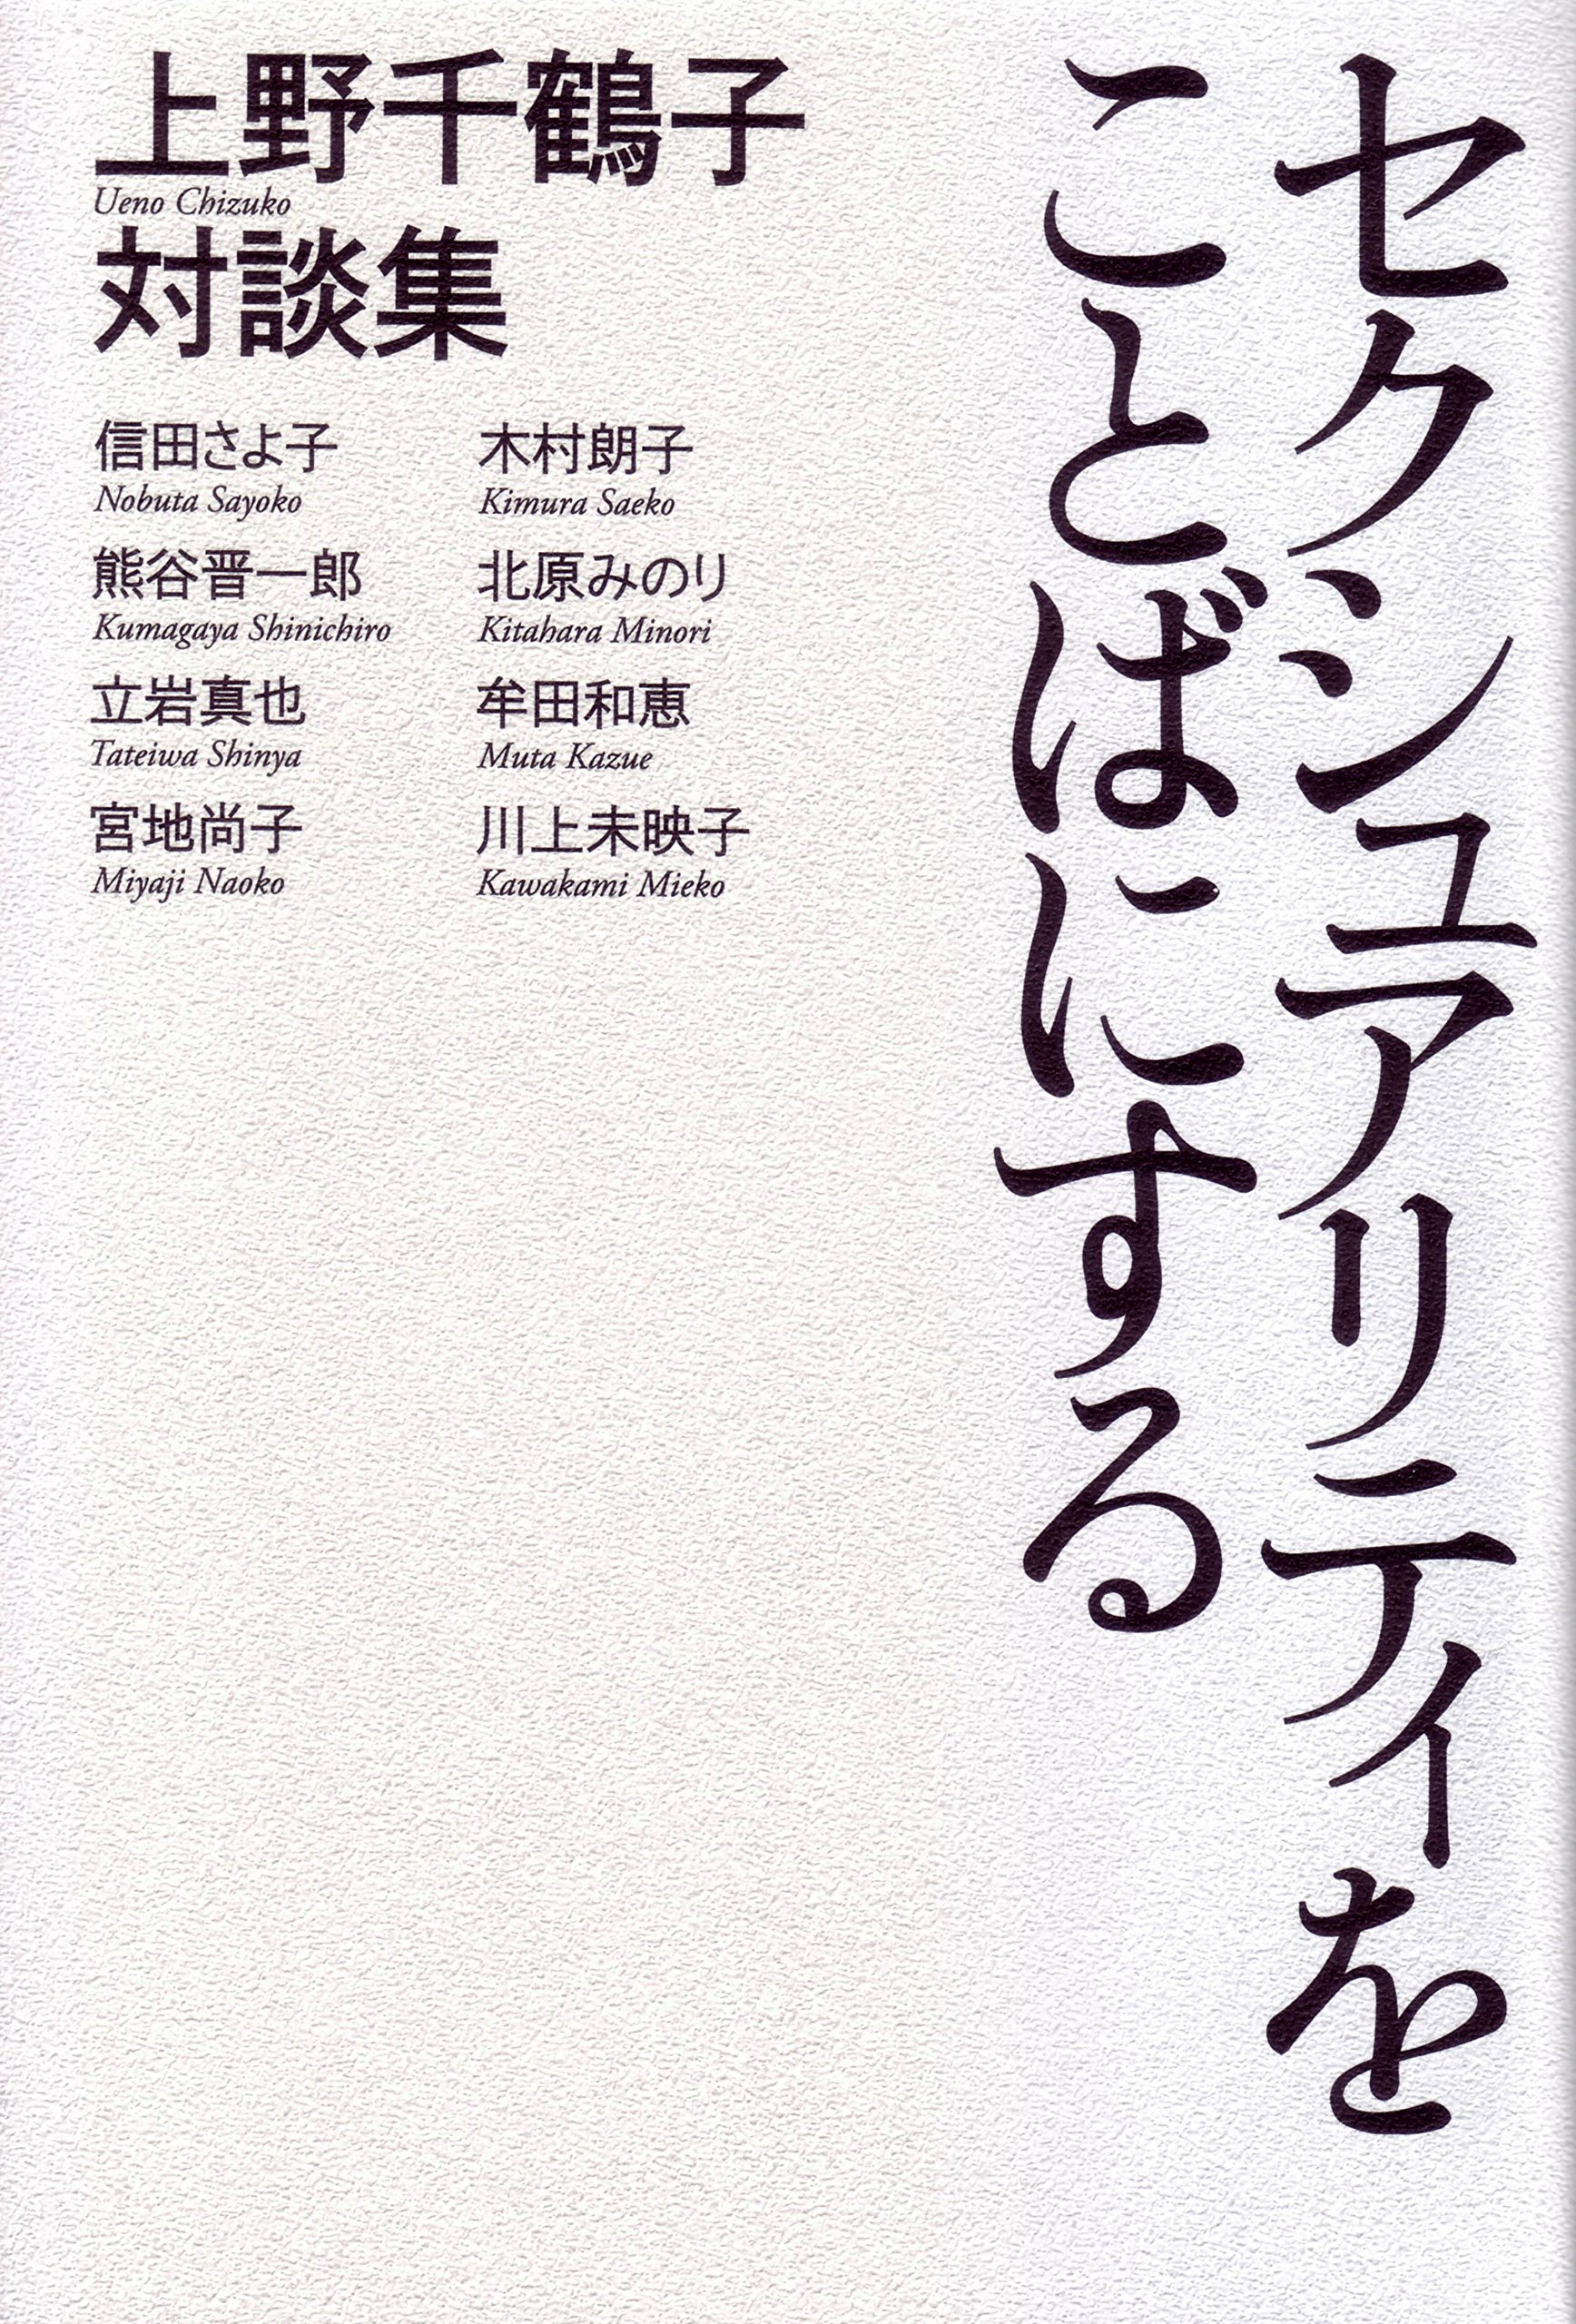 セクシュアリティを
ことばにする
上野千鶴子
Ueno Chizuko
対談集
信田さよ子
Nobuta Sayoko
熊谷晋一郎
Kumagaya Shinichiro
立岩真也
Tateiwa Shinya
宮地尚子
Miyaji Naoko
木村朗子
Kimura Saeko
北原みのり
Kitahara Minori
牟田和恵
Muta Kazue
川上未映子
Kawakami Mieko